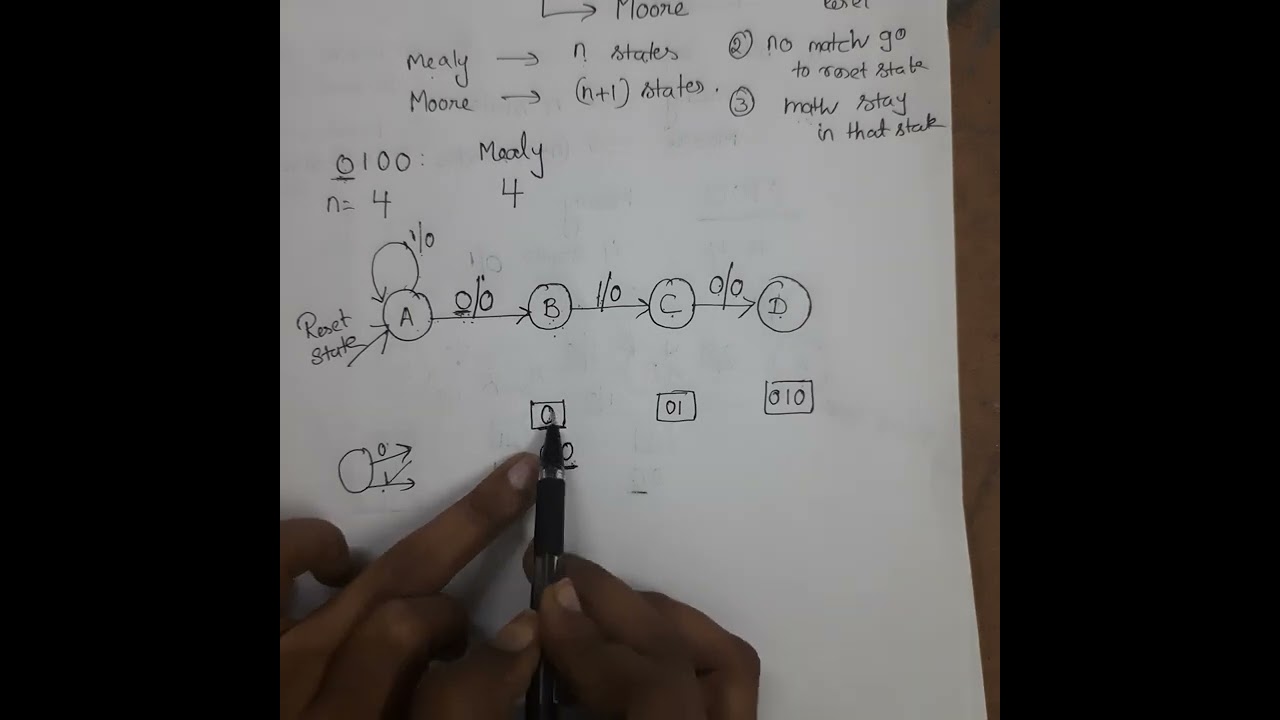 Moore
Mealy → n states
Moore → (n+1) states.
② no match go
to reset state
③ math stay
in that state
0100: Mealy
n= 4 4
1/0
Reset
State
A 0/0 B 1/0 C 0/0 D
0 01 010
0
0
1